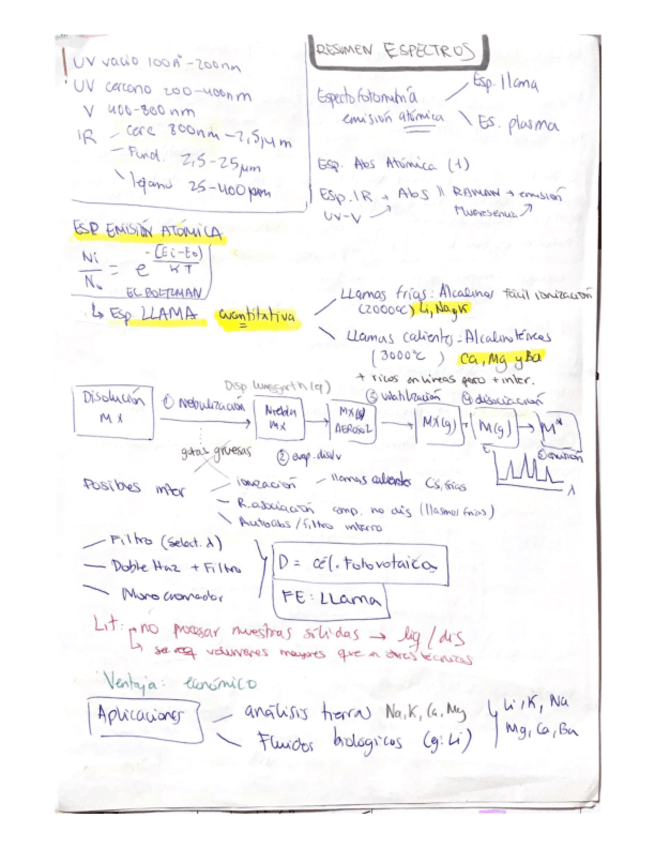 RESUMEN ESPECTROS
UV vacio 100Aº-200nm
UV cercano 200-400nm
V 400-800nm
IR - cerc 800nm-2,5μm
- Fund. 2,5-25μm
\ lejano 25-400μm
Espectofotometría
emisión atómica
Esp. llama
Es. plasma
Esp. Abs Atómica (1)
Esp. IR → Abs || RAMAN → emisión
UV-V
Fluoresencia
ESP EMISIÓN ATÓMICA
Ni/No = e -(Ei-Eo)/KT
EC BOLTZMAN
↳ Esp LLAMA cuantitativa
Llamas frías: Alcalinos fácil ionización
(2000ºC) Li, Na y K
Llamas calientes: Alcalinotérreos
(3000ºC) Ca, Mg y Ba
+ ricos en líneas pero + inter.
Disolución
MX
① Nebulización
Niebla
MX
MX(s)
AEROSOL
③ volatilización
MX(g)
④ disociación
M(g)
M*
⑤ emisión
λ
gotas gruesas
② evap. disolv
Posibles inter
ionización - llamas calientes Cs, frías
R. asociación comp. no dis (llamas frías)
Autoabs / filtro interno
Filtro (select. λ)
Doble Haz + Filtro
Monocromador
D = cél. Fotovoltaica
FE: LLama
Lit: no procesar muestras sólidas → liq/dis
↳ se req volumenes mayores que en otras técnicas
Ventaja: económico
Aplicaciones
análisis tierras Na, K, Ca, Mg
Fluidos biologicos (ej: Li)
Li, K, Na
Mg, Ca, Ba